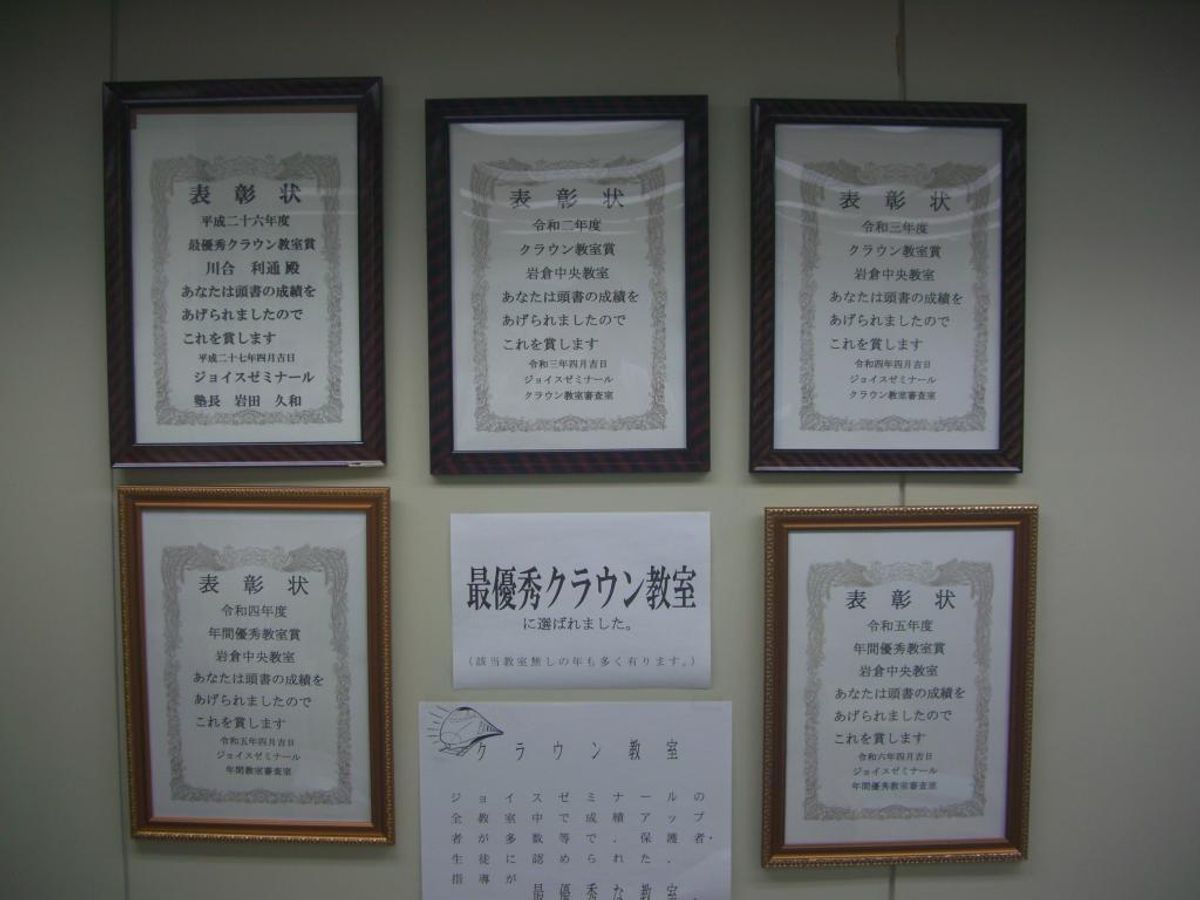 表彰状
平成二十六年度
最優秀クラウン教室賞
川合 利通 殿
あなたは頭書の成績を
あげられましたので
これを賞します
平成二十七年四月吉日
ジョイスゼミナール
塾長 岩田 久和
表彰状
令和二年度
クラウン教室賞
岩倉中央教室
あなたは頭書の成績を
あげられましたので
これを賞します
令和三年四月吉日
ジョイスゼミナール
クラウン教室審査室
表彰状
令和三年度
クラウン教室賞
岩倉中央教室
あなたは頭書の成績を
あげられましたので
これを賞します
令和四年四月吉日
ジョイスゼミナール
クラウン教室審査室
表彰状
令和四年度
年間優秀教室賞
岩倉中央教室
あなたは頭書の成績を
あげられましたので
これを賞します
令和五年四月吉日
ジョイスゼミナール
年間教室審査室
最優秀クラウン教室
に選ばれました。
(該当教室無しの年も多く有ります。)
クラウン教室
ジョイスゼミナールの
全教室中で成績アップ
者が多数等で、保護者・
生徒に認められた、
指導が
最優秀な教室。
表彰状
令和五年度
年間優秀教室賞
岩倉中央教室
あなたは頭書の成績を
あげられましたので
これを賞します
令和六年四月吉日
ジョイスゼミナール
年間優秀教室審査室